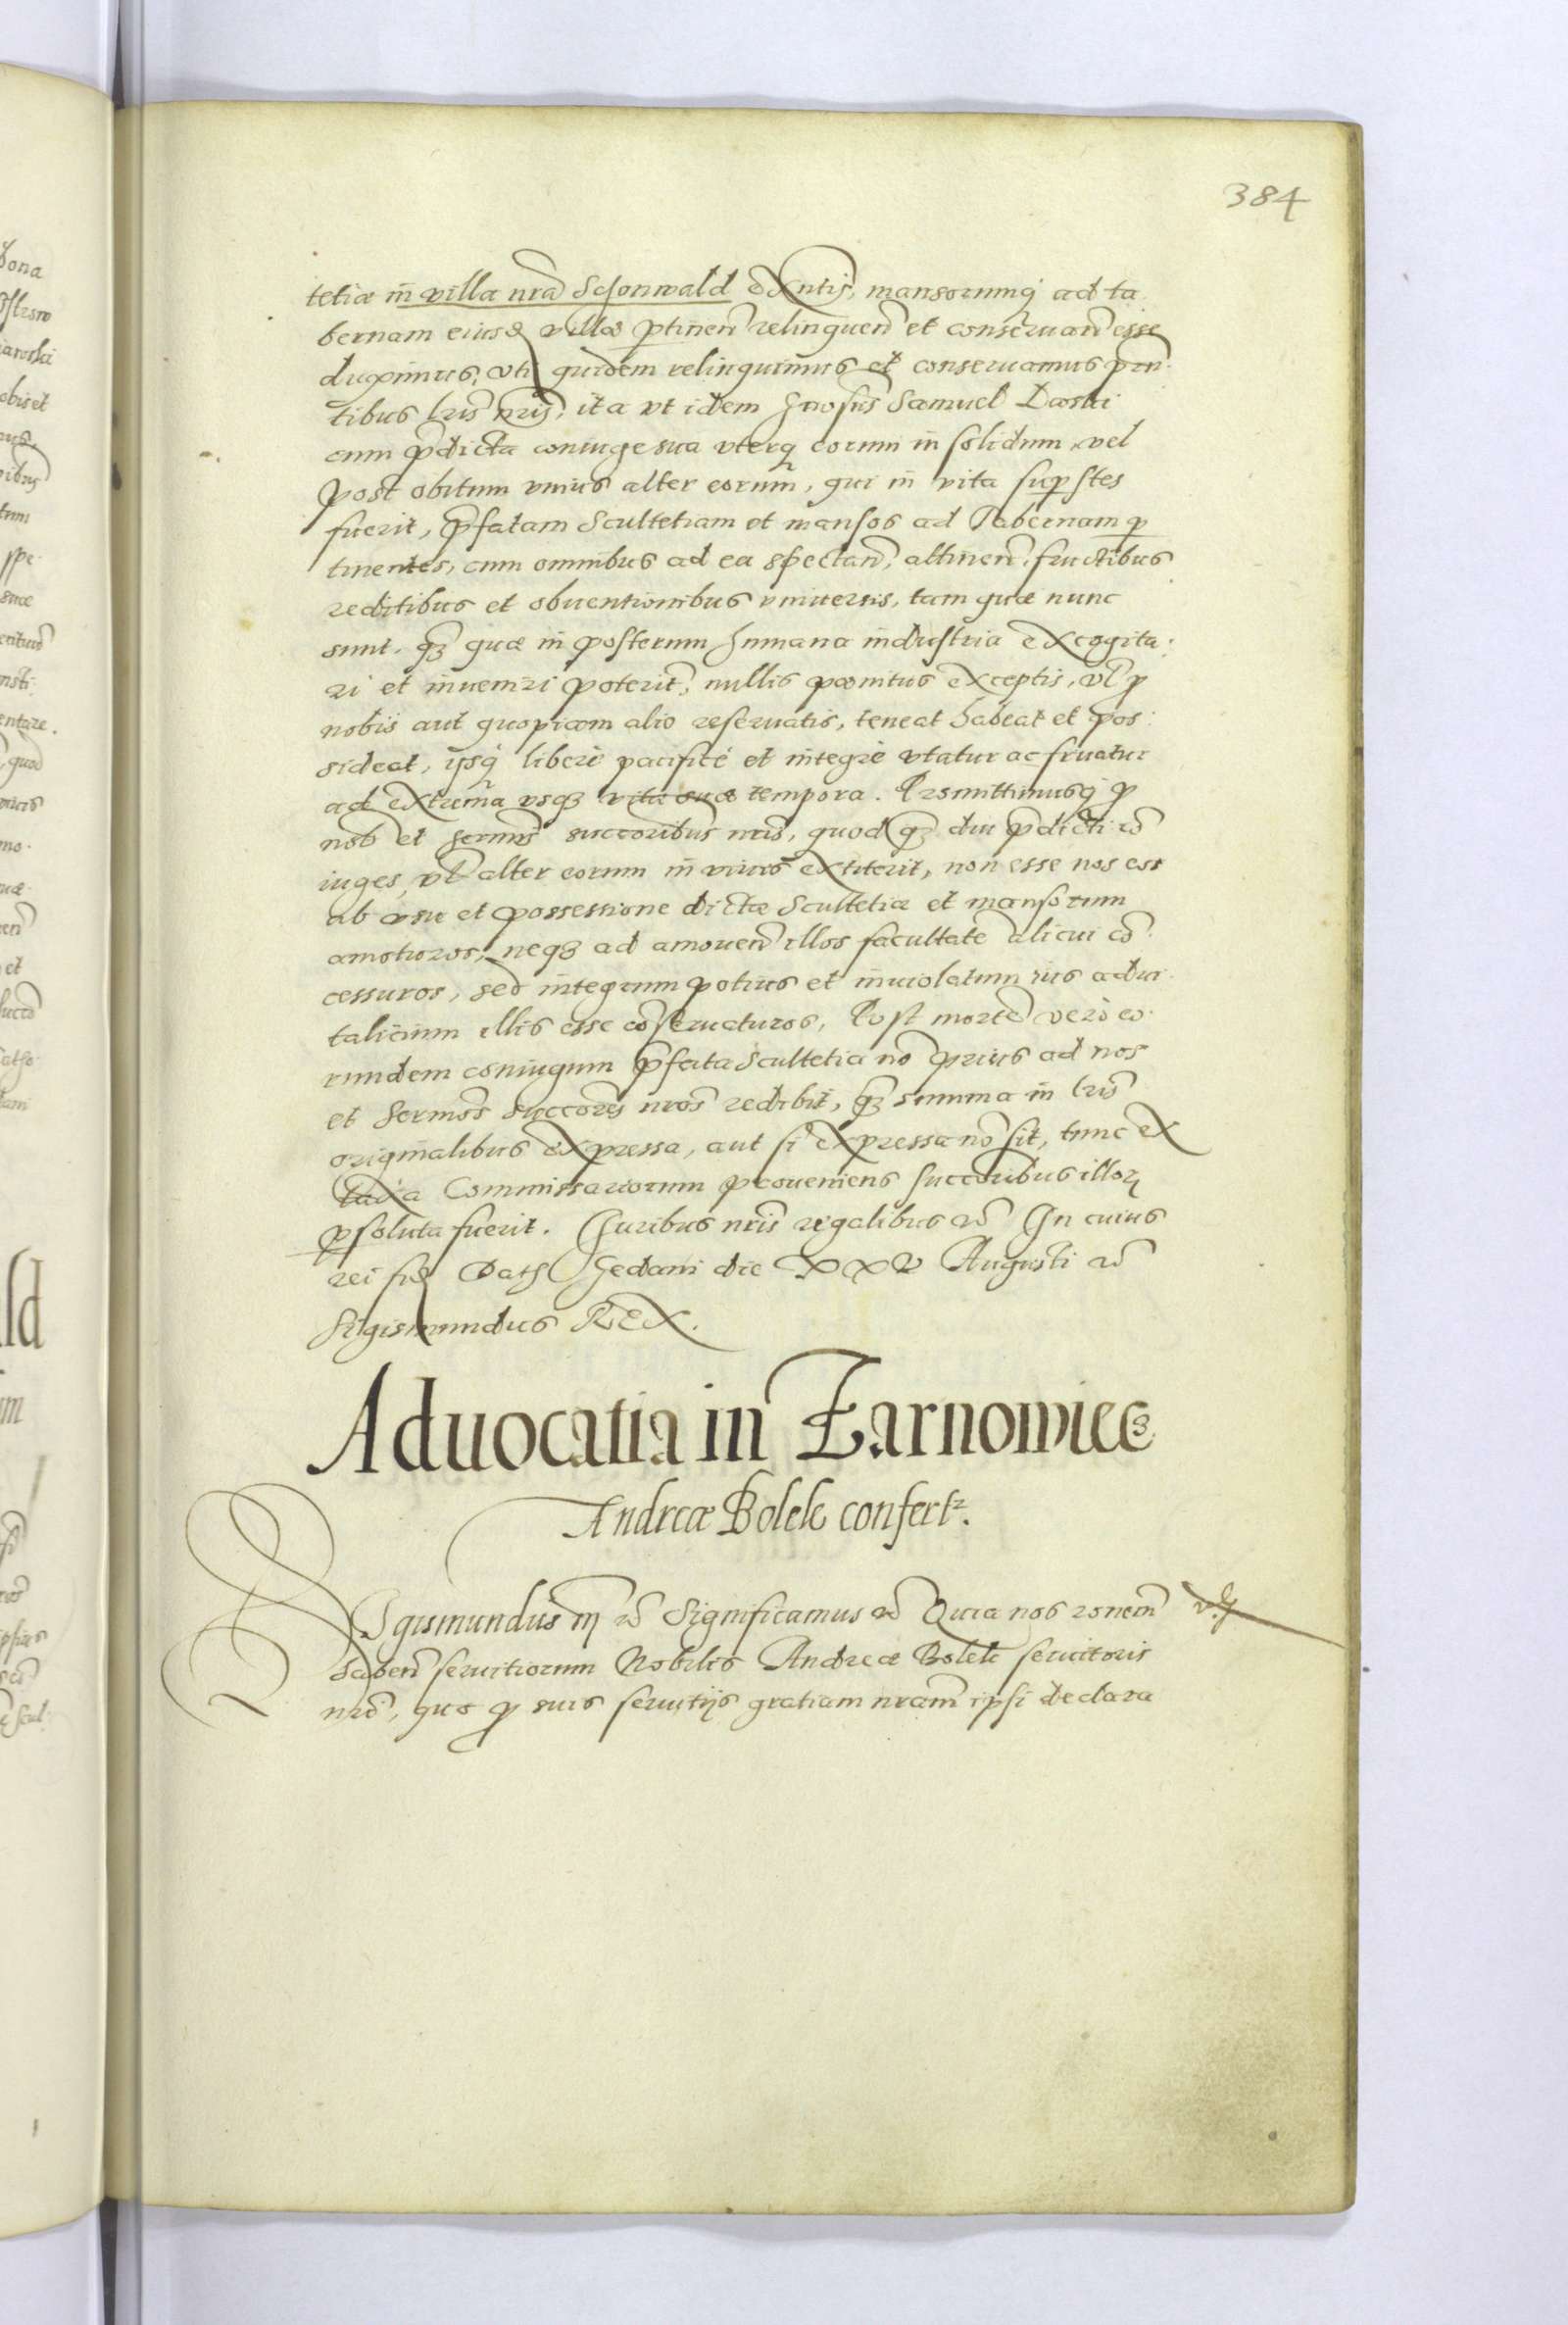 384
tetiæ in villa nrã Schonwald exñtis, mansorumq́ ad ta
bernam eiusd villæ ptinen̄ relinquen̄ et conseruan̄ esse
duximus, vti quidem relinquimus et conseruamus pn̄
tibus lris nris, ita vt idem Gnosus Samuel
cum p̄dicta coniuge sua vterq eorum in solidum, vel
post obitum vnius alter eorum, qui in vita supstes
fuerit, p̄fatam Scultetiam et mansos ad Tabernam p
tinentes, cum omnibus ad ea spectan̄, attinen̄, fructibus
reditibus et obuentionibus vniuersis, tam quæ nunc
sunt, qz quæ in posterum humana industria excogita
ri et inueniri poterit, nullis pœnitus exceptis, vl p
nobis aut quopiam alio reseruatis, teneat habeat et pos
sideat, ysq́ liberè pacificè et integrè vtatur ac fruatur
ad extrema vsqz vitæ suæ tempora. Promittimusq́ p
nob et sermis succoribus nris, quod qz diu p̄dicti cō
iuges, vl alter eorum in viuis extiterit, non esse nos eos
ab vsu et possessione dictæ Scultetiæ et mansorum
amoturos, neqz ad amouen̄ illos facultatē alicui cō
cessuros, sed integrum potius et inuiolatum ius adui
talicium illis esse cōseruaturos, Post mortē verò eo
rundem coniugum p̄fata Scultetia nō prius ad nos
et sermos succores nros redibit, qz summa in lris
originalibus expressa, aut si expressa nō sit, tunc ex
taxa Commissariorum proueniens succoribus illor
psoluta fuerit. Iuribus nris regalibus etc̄ In cuius
rei fid Dath Gedani die XXV Augusti etc̄
Sigismundus REX.
Aduocatia in Zarnowiec
Andreæ Bolek confertr.
Sigismundus III etc̄ Significamus etc̄ Quia nos ronem
haben̄ seruitiorum Nobilis Andreæ Bolek seruitoris
nrī, quo p suis seruitijs gratiam nram ipsi declara